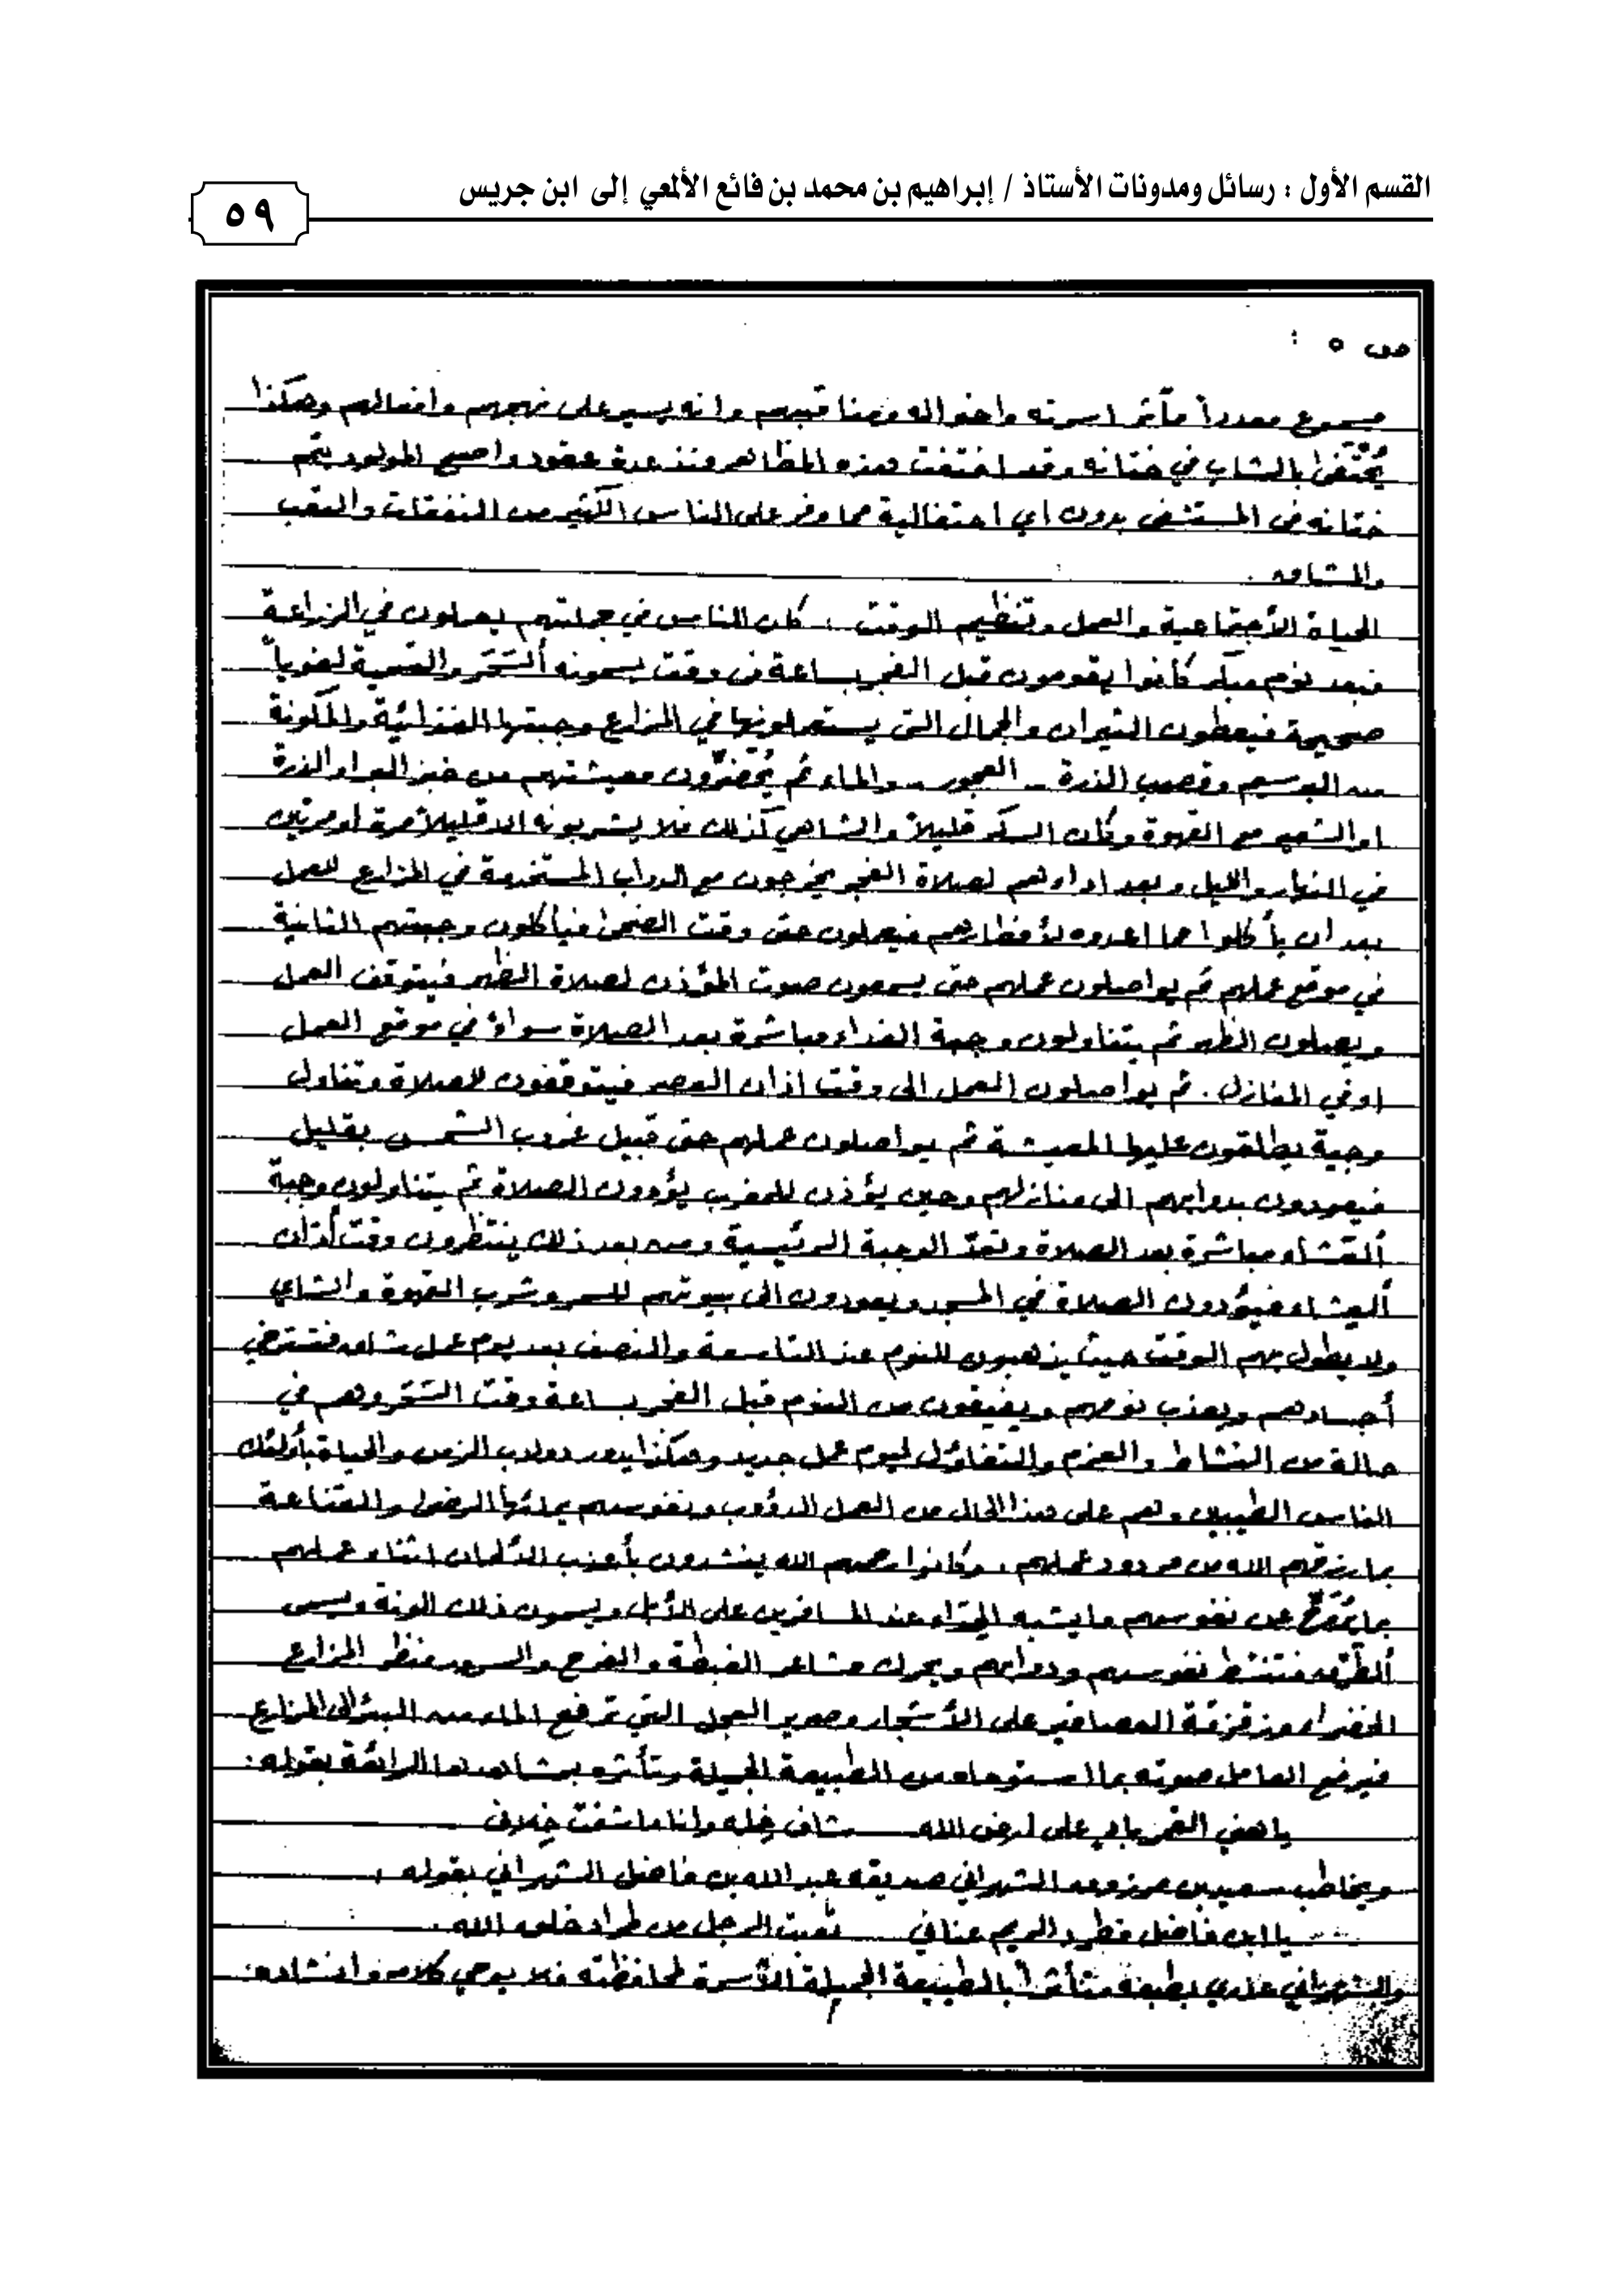 القسم الأول : رسائل ومدونات الأستاذ / إبراهيم بن محمد بن فائع الألمعي إلى ابن جريس
٥٩
ص ٥ :
مسموع معدداً مآثر اسرته واخواله ومناقبهم وانه يسير على نهجهم وافعالهم وهكذا
يُحْتَفى بالشاب في ختانه وقد اختفت هذه المظاهر منذ عدة عقود واصبح المولود يتم
ختانه في المستشفى بدون اي احتفالية مما وفر على الناس الكثير من النفقات والتعب
والمشاق .
الحياة الأجتماعية والعمل وتنظيم الوقت : كان الناس في جملتهم يعملون في الزراعة
فبعد نوم مبكر كانوا يقومون قبل الفجر بساعة في وقت يسمونه ألسَّحَر والتسمية لغوياً
صحيحة فيعطون الثيران والجمال التي يستعملونها في المزارع وجبتها الغذائية والمكونة
من البرسيم وقصب الذرة - العجور - والماء ثم يُحضرّون معيشتهم من خبز البر او الذرة
او الشعير مع القهوة وكان السكر قليلاً والشاهي كذلك فلا يشربونه الا قليلاً مرة او مرتين
في النهار والليل وبعد اداءهم لصلاة الفجر يخرجون مع الدواب المستخدمة في المزارع للعمل
بعد ان يأكلوا مما اعدوه لأفطارهم فيعملون حتى وقت الضحى فيأكلون وجبتهم الثانية
في موقع عملهم ثم يواصلون عملهم حتى يسمعون صوت المؤذن لصلاة الظهر فيتوقف العمل
ويصلون الظهر ثم يتناولون وجبة الغداء مباشرة بعد الصلاة سواءً في موقع العمل
او في المنازل . ثم يواصلون العمل الى وقت اذان العصر فيتوقفون للصلاة وتناول
وجبة يطلقون عليها المعيشة ثم يواصلون عملهم حتى قبيل غروب الشمس بقليل
فيعودون بدوابهم الى منازلهم وحين يؤذن للمغرب يؤدون الصلاة ثم يتناولون وجبة
ألعَشاء مباشرة بعد الصلاة وتعدّ الوجبة الرئيسية ومن بعد ذلك ينتظرون وقت أذان
ألعِشاء فيؤدون الصلاة في المسجد ويعودون الى بيوتهم للسمر وشرب القهوة والشاي
ولا يطول بهم الوقت حيث يذهبون للنوم عند التاسعة والنصف بعد يوم عمل شاق فتسترخي
أجسادهم ويعذب نومهم ويفيقون من النوم قبل الفجر بساعة وقت السَّحَر وهم في
حالة من النشاط والعزم والتفاؤل ليوم عمل جديد وهكذا يدور دولاب الزمن والحياة بأولئك
الناس الطيبين وهم على هذا الحال من العمل الدؤوب ونفوسهم يملئها الرضى والقناعة
بما رزقهم الله من مردود عملهم ، وكانوا رحمهم الله ينشدون بأعذب الألحان اثناء عملهم
بما يُرَوِّح عن نفوسهم ما يشبه الحِدَاء عند المسافرين على الأبل ويسمون ذلك الونة ويسمى
ألطَرَق فتنشط نفوسهم ودوابهم ويحرك مشاعر الغبطة والفرح والسرور منظر المزارع
الخضراء وزقزقة العصافير على الأشجار وصرير العجل التي ترفع الماء من البئر الى المزارع
فيرفع العامل صوته بما استوحاه من الطبيعة الجميلة وتأثره بمشاهدها الرائعة بقوله :
ياهني القمر بادٍ على ارض الله شاف خِله وانا ما شفت خِلاني
ويخاطب سعيد بن مرزوق الشهراني صديقه عبدالله بن فاضل الشهراني بقوله ،
يا ابن فاضل فطرد الريم عناني تعبت الرجل من طراد خلق الله .
والشهراني عذري بطبعه متأثراً بالطبيعة الجميلة الآسرة لمحافظته فلا يوحي كلامه وانشاده :